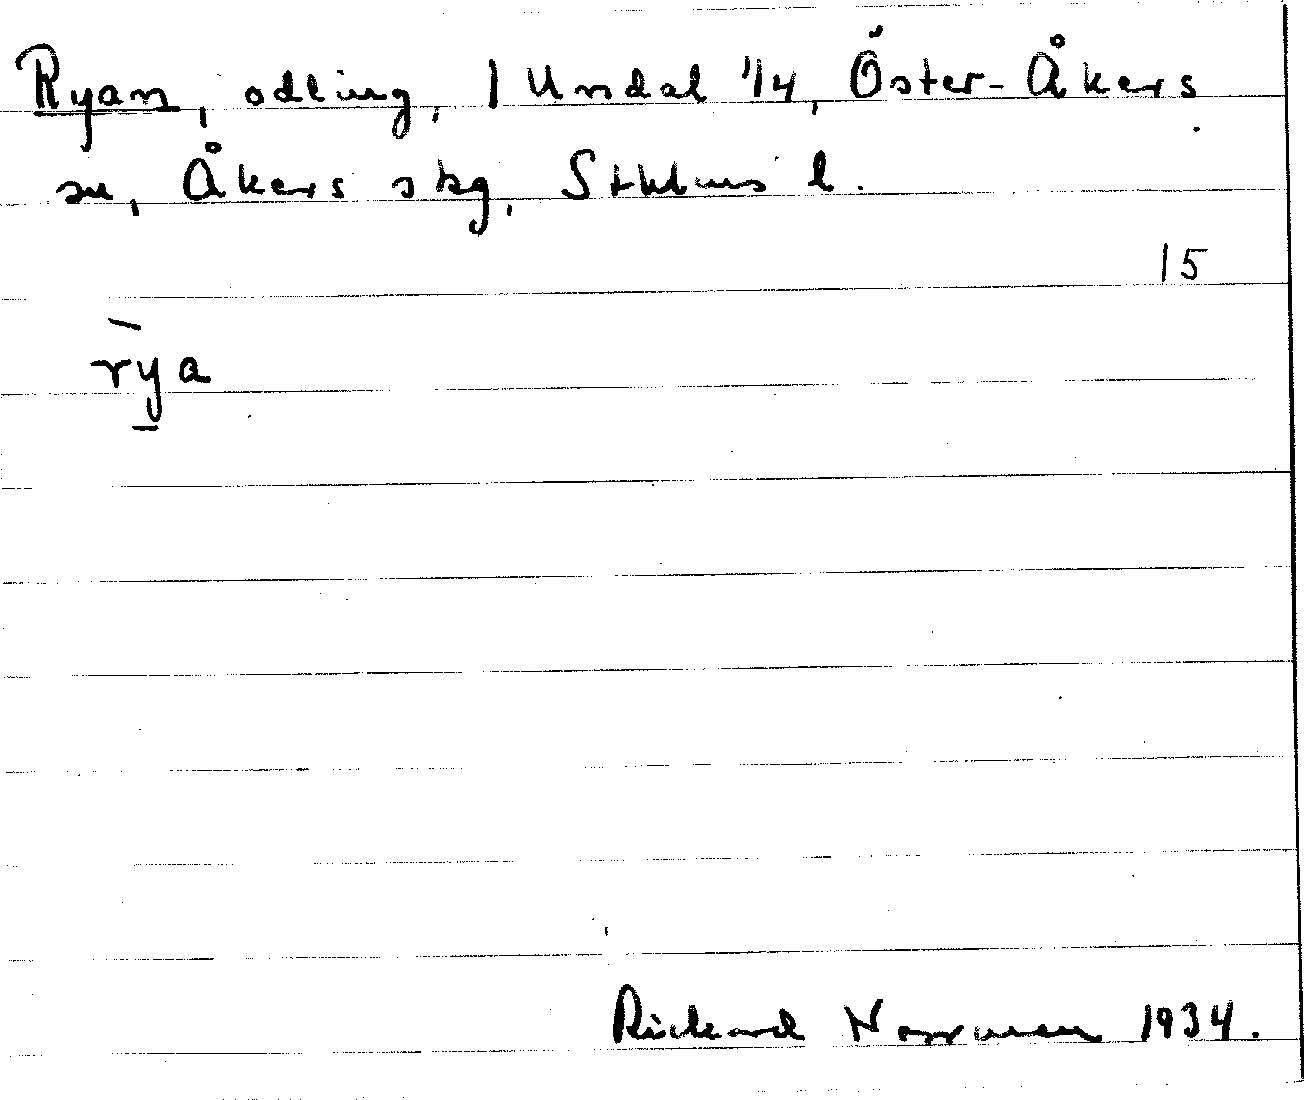 Ryan, odling, 1 Unsdal 1/4, Öster-Åkers
sn, Åkers skg, Sthlms l.
15
rya
Rickard Norrman 1934.